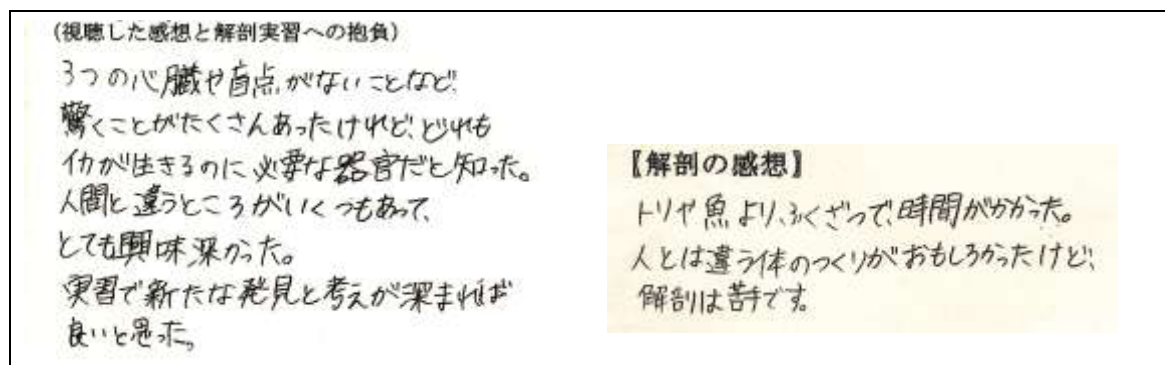 (視聴した感想と解剖実習への抱負)
3つの心臓や盲点がないことなど、
驚くことがたくさんあったけれど、どれも
イカが生きるのに必要な器官だと知った。
人間と違うところがいくつもあって、
とても興味深かった。
実習で新たな発見と考えが深まれば
良いと思った。
【解剖の感想】
トリや魚より、ふくざつで、時間がかかった。
人とは違う体のつくりがおもしろかったけど、
解剖は苦手です。